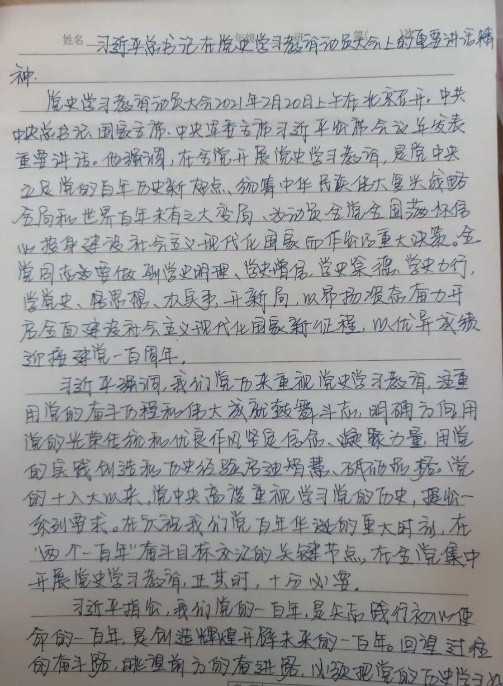 姓名
习近平总书记在党史学习教育动员大会上的重要讲话精
神.
党史学习教育动员大会2021年2月20日上午在北京召开。中共
中央总书记、国家主席、中央军委主席习近平出席会议并发表
重要讲话。他强调,在全党开展党史学习教育,是党中央
立足党的百年历史新起点、统筹中华民族伟大复兴战略
全局和世界百年未有之大变局、为动员全党全国满怀信
心投身建设社会主义现代化国家而作出的重大决策。全
党同志要做到学史明理、学史增信、学史崇德、学史力行,
学党史、悟思想、办实事、开新局,以昂扬姿态奋力开
启全面建设社会主义现代化国家新征程,以优异成绩
迎接建党一百周年。
习近平强调,我们党历来重视党史学习教育,注重
用党的奋斗历程和伟大成就鼓舞斗志、明确方向,用
党的光荣传统和优良作风坚定信念、凝聚力量,用党
的实践创造和历史经验启迪智慧、砥砺品格。党
的十八大以来,党中央高度重视学习党的历史,提出一
系列要求。在庆祝我们党百年华诞的重大时刻,在
"两个一百年"奋斗目标交汇的关键节点,在全党集中
开展党史学习教育,正其时,十分必要。
习近平指出,我们党的一百年,是矢志践行初心使
命的一百年,是创造辉煌开辟未来的一百年。回望过往
的奋斗路,眺望前方的奋进路,必须把党的历史学习